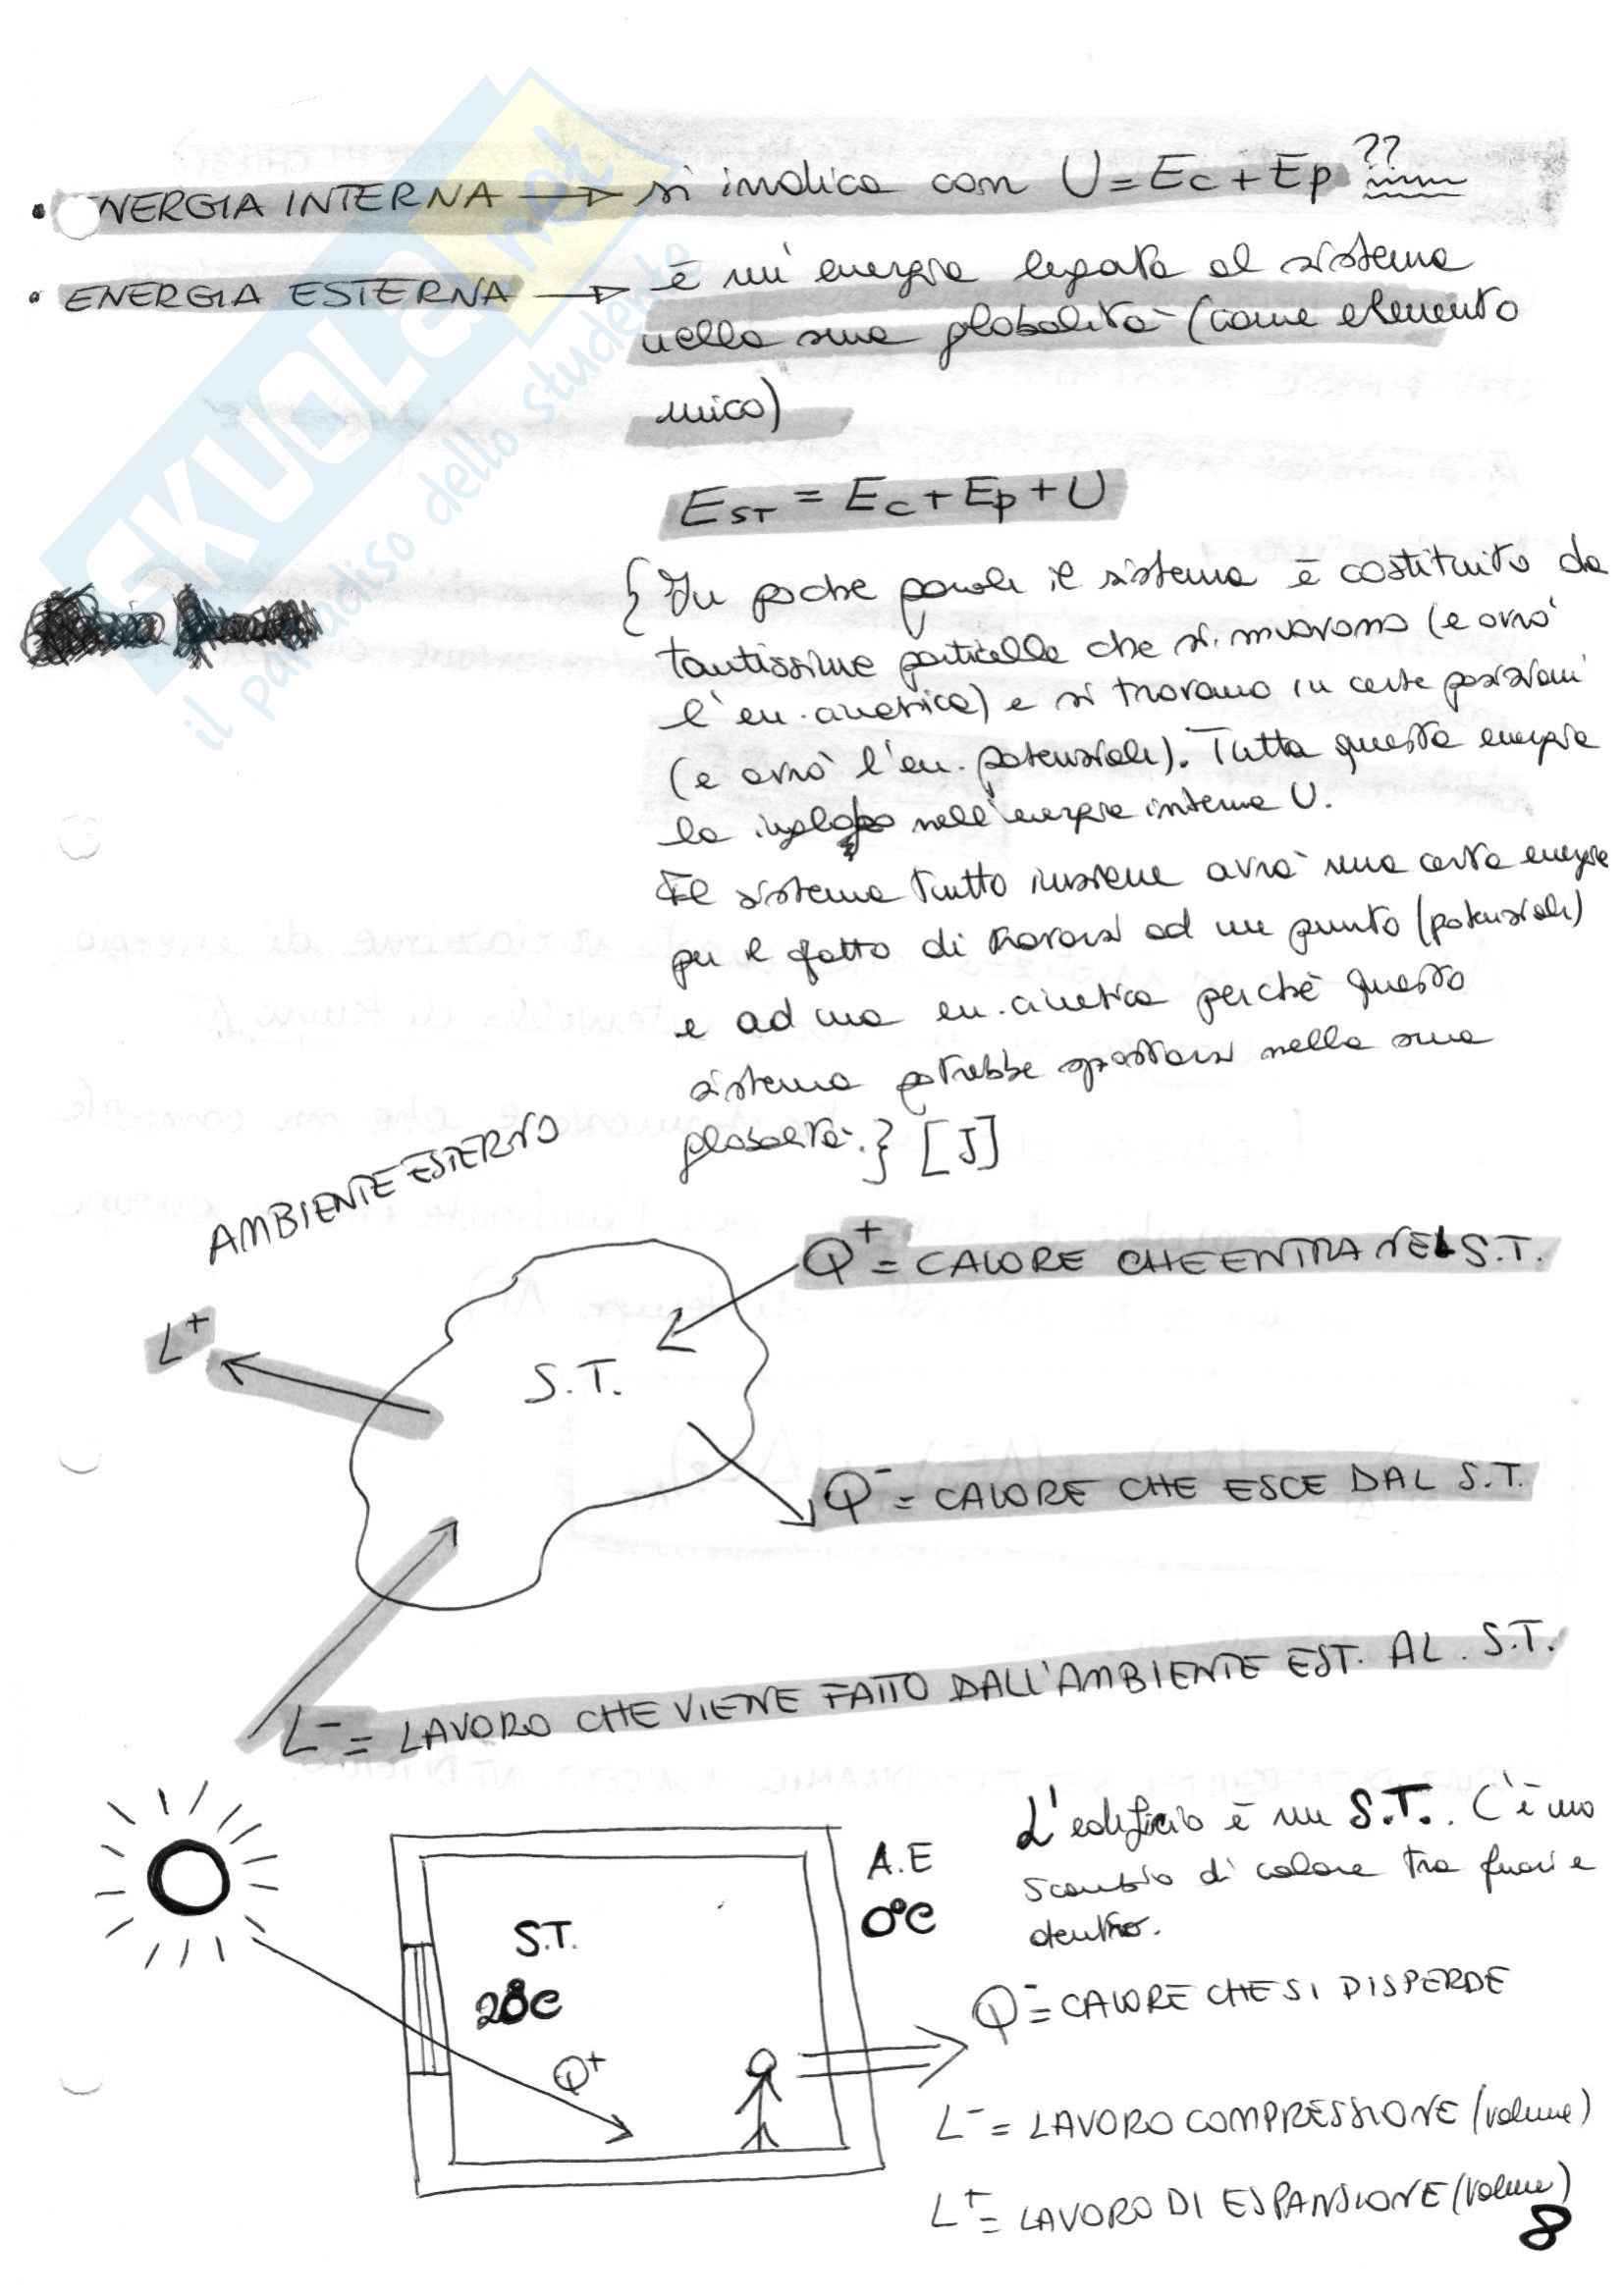 • ENERGIA INTERNA → si indica con U = Ec + Ep ??
• ENERGIA ESTERNA → è un'energia legata al sistema
nella sua globalità (come elemento
unico)
EST = Ec + Ep + U
{In poche parole il sistema è costituito da
tantissime particelle che si muovono (e avrò
l'en. cinetica) e si trovano in certe posizioni
(e avrò l'en. potenziale). Tutta questa energia
la inglobo nell'energia interna U.
Il sistema tutto insieme avrà una certa energia
per il fatto di trovarsi ad un punto (potenziale)
e ad una en. cinetica perchè questo
sistema potrebbe spostarsi nella sua
globalità.} [J]
AMBIENTE ESTERNO
Q+ = CALORE CHE ENTRA NEL S.T.
L+
S.T.
Q- = CALORE CHE ESCE DAL S.T.
L- = LAVORO CHE VIENE FATTO DALL'AMBIENTE EST. AL S.T.
L'edificio è un S.T.. C'è uno
scambio di calore tra fuori e
dentro.
A.E
0°C
S.T.
20°C
Q+
Q- = CALORE CHE SI DISPERDE
L- = LAVORO COMPRESSIONE (volume)
L+ = LAVORO DI ESPANSIONE (volume)
8
SKUOLA.net
il paradiso dello studente